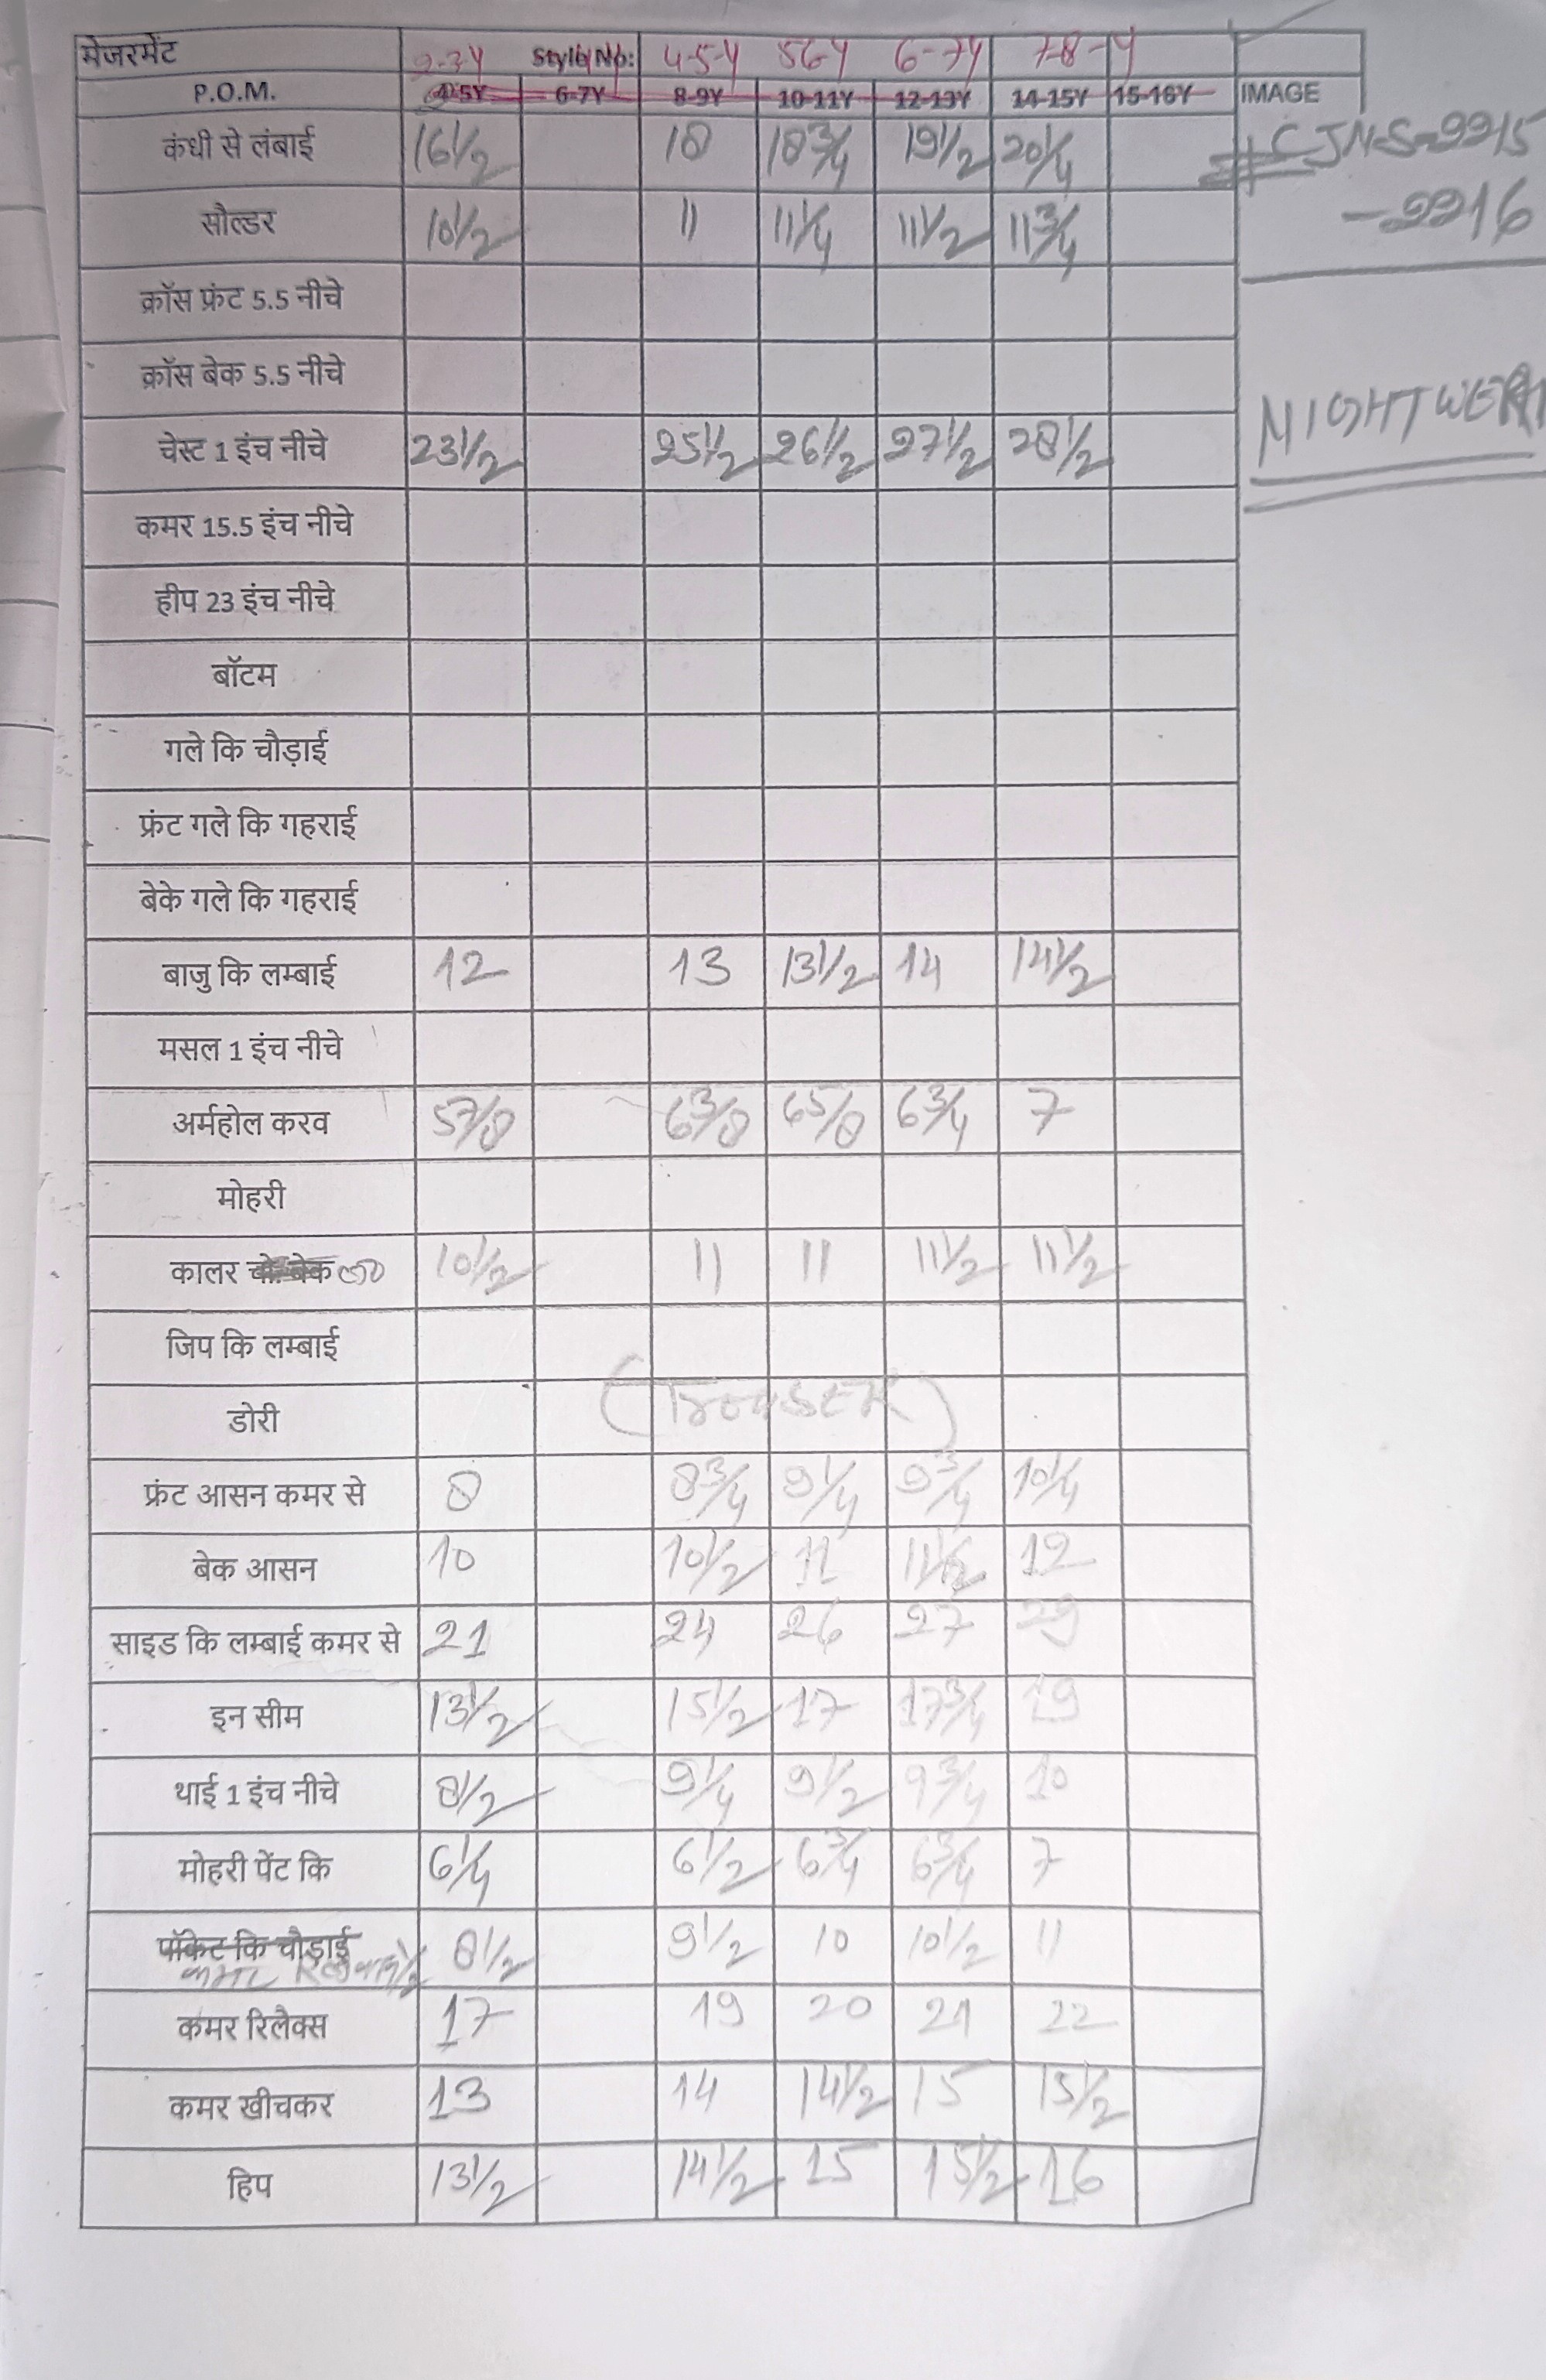 मेजरमेंट 2-3Y Style No: 4-5-Y 56-Y 6-7Y 7-8-Y
P.O.M. 4-5Y 6-7Y 8-9Y 10-11Y 12-13Y 14-15Y 15-16Y IMAGE
कंधी से लंबाई 16 1/2 18 18 3/4 19 1/2 20 1/4 CJNS-2215
-2216
सौल्डर 10 1/2 11 11 1/4 11 1/2 11 3/4
क्रॉस फ्रंट 5.5 नीचे
क्रॉस बेक 5.5 नीचे
चेस्ट 1 इंच नीचे 23 1/2 25 1/2 26 1/2 27 1/2 28 1/2 NIGHTWEAR
कमर 15.5 इंच नीचे
हीप 23 इंच नीचे
बॉटम
गले कि चौड़ाई
फ्रंट गले कि गहराई
बेके गले कि गहराई
बाजु कि लम्बाई 12 13 13 1/2 14 14 1/2
मसल 1 इंच नीचे
अर्महोल करव 5 7/8 6 3/8 6 5/8 6 3/4 7
मोहरी
कालर 10 1/2 11 11 11 1/2 11 1/2
जिप कि लम्बाई
(TroUSER)
डोरी
फ्रंट आसन कमर से 8 8 3/4 9 1/4 9 3/4 10 1/4
बेक आसन 10 10 1/2 11 11 1/2 12
साइड कि लम्बाई कमर से 21 24 26 27 29
इन सीम 13 1/2 15 1/2 17 17 3/4 19
थाई 1 इंच नीचे 8 1/2 9 1/4 9 1/2 9 3/4 10
मोहरी पेंट कि 6 1/4 6 1/2 6 3/4 6 3/4 7
पॉकेट कि चौड़ाई 8 1/2 9 1/2 10 10 1/2 11
कमर रिलैक्स 17 19 20 21 22
कमर खीचकर 13 14 14 1/2 15 15 1/2
हिप 13 1/2 14 1/2 15 15 1/2 16